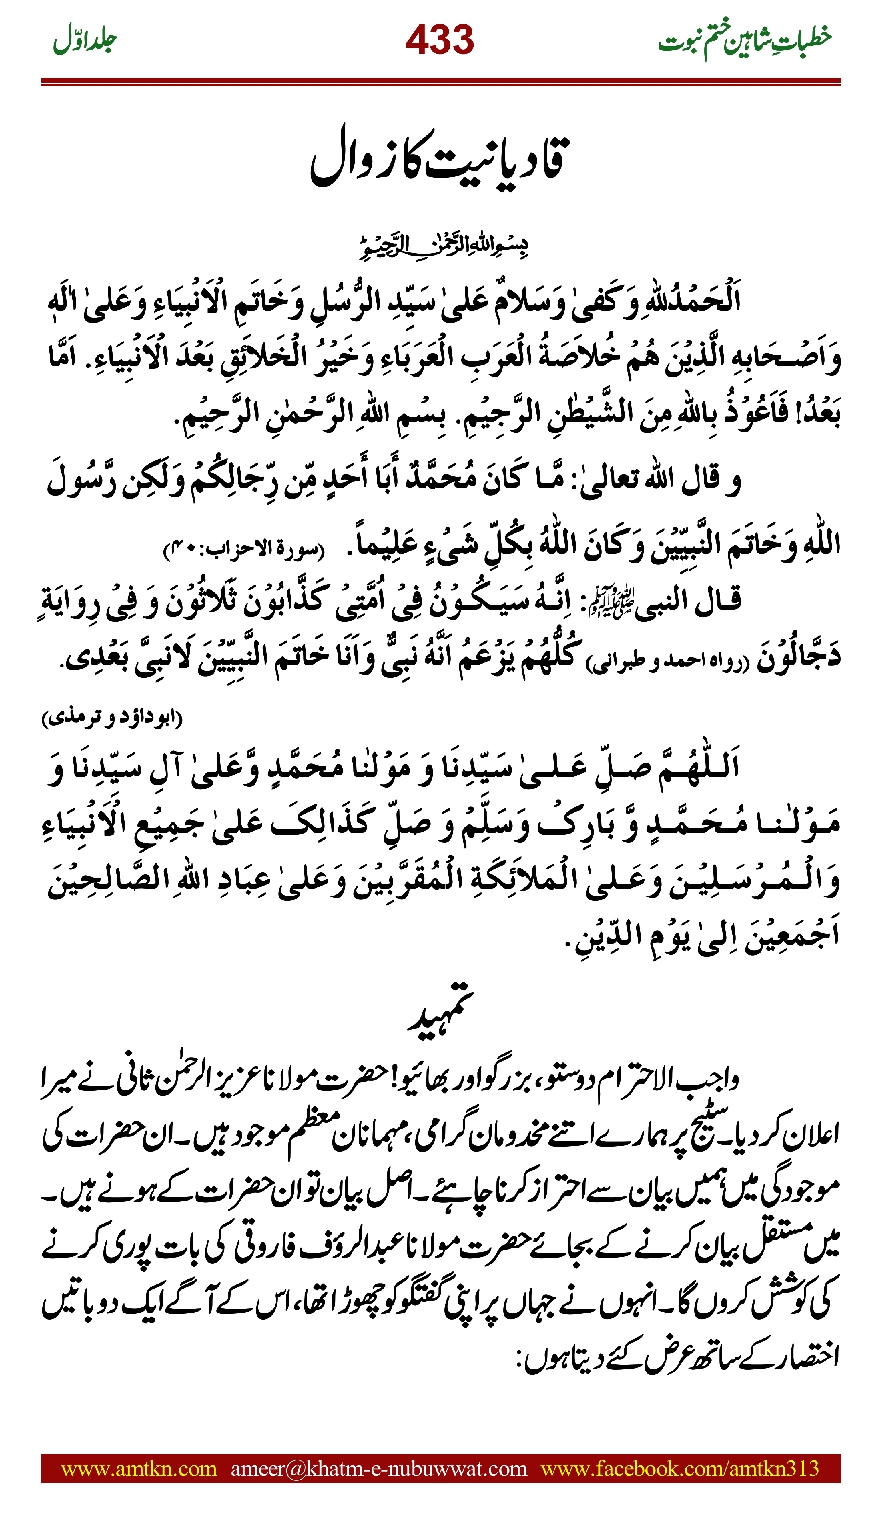 خطباتِ شاہین ختم نبوت 433 جلد اوّل
قادیانیت کا زوال
بِسْمِ اللهِ الرَّحْمٰنِ الرَّحِیْمِ
اَلْحَمْدُلِلّٰهِ وَكَفىٰ وَسَلَامٌ عَلىٰ سَيِّدِ الرُّسُلِ وَخَاتَمِ الْاَنْبِيَاءِ وَعَلىٰ اٰلَهٖ
وَاَصْحَابِهِ الَّذِيْنَ هُمْ خُلاَصَةُ الْعَرَبِ الْعَرَبَاءِ وَخَيْرُ الْخَلائِقِ بَعْدَ الْاَنْبِيَاءِ. اَمَّا
بَعْدُ! فَاَعُوْذُ بِاللهِ مِنَ الشَّيْطٰنِ الرَّجِيْمِ. بِسْمِ اللهِ الرَّحْمٰنِ الرَّحِيْمِ.
و قال الله تعالىٰ: مَّا كَانَ مُحَمَّدٌ أَبَا أَحَدٍ مِّن رِّجَالِكُمْ وَلَكِن رَّسُولَ
اللهِ وَخَاتَمَ النَّبِيِّيْنَ وَكَانَ اللهُ بِكُلِّ شَىْءٍ عَلِيْماً. (سورة الاحزاب:۴۰)
قال النبی ﷺ: اِنَّهُ سَيَكُوْنُ فِىْ اُمَّتِىْ كَذَّابُوْنَ ثَلَاثُوْنَ وَ فِىْ رِوَايَةٍ
دَجَّالُوْنَ (رواه احمد و طبرانى) كُلُّهُمْ يَزْعَمُ اَنَّهُ نَبِىٌّ وَاَنَا خَاتَمَ النَّبِيِّيْنَ لَانَبِىَّ بَعْدِى.
(ابوداؤد و ترمذی)
اَللّٰهُمَّ صَلِّ عَلىٰ سَيِّدِنَا وَ مَوْلٰنَا مُحَمَّدٍ وَّعَلىٰ آلِ سَيِّدِنَا وَ
مَوْلٰنَا مُحَمَّدٍ وَّ بَارِكْ وَسَلِّمْ وَ صَلِّ كَذَالِكَ عَلىٰ جَمِيْعِ الْاَنْبِيَاءِ
وَالْمُرْسَلِيْنَ وَعَلىٰ الْمَلَائِكَةِ الْمُقَرَّبِيْنَ وَعَلىٰ عِبَادِ اللهِ الصَّالِحِيْنَ
اَجْمَعِيْنَ اِلىٰ يَوْمِ الدِّيْنِ.
تمہید
واجب الاحترام دوستو، بزرگو اور بھائیو! حضرت مولانا عزیز الرحمٰن ثانی نے میرا
اعلان کر دیا۔ سٹیج پر ہمارے اتنے مخدومان گرامی، مہمانان معظم موجود ہیں۔ ان حضرات کی
موجودگی میں ہمیں بیان سے احتراز کرنا چاہئے۔ اصل بیان تو ان حضرات کے ہونے ہیں۔
میں مستقل بیان کرنے کے بجائے حضرت مولانا عبدالرؤف فاروقی کی بات پوری کرنے
کی کوشش کروں گا۔ انہوں نے جہاں پر اپنی گفتگو کو چھوڑا تھا، اس کے آگے ایک دو باتیں
اختصار کے ساتھ عرض کئے دیتا ہوں:
www.amtkn.com ameer@khatm-e-nubuwwat.com www.facebook.com/amtkn313